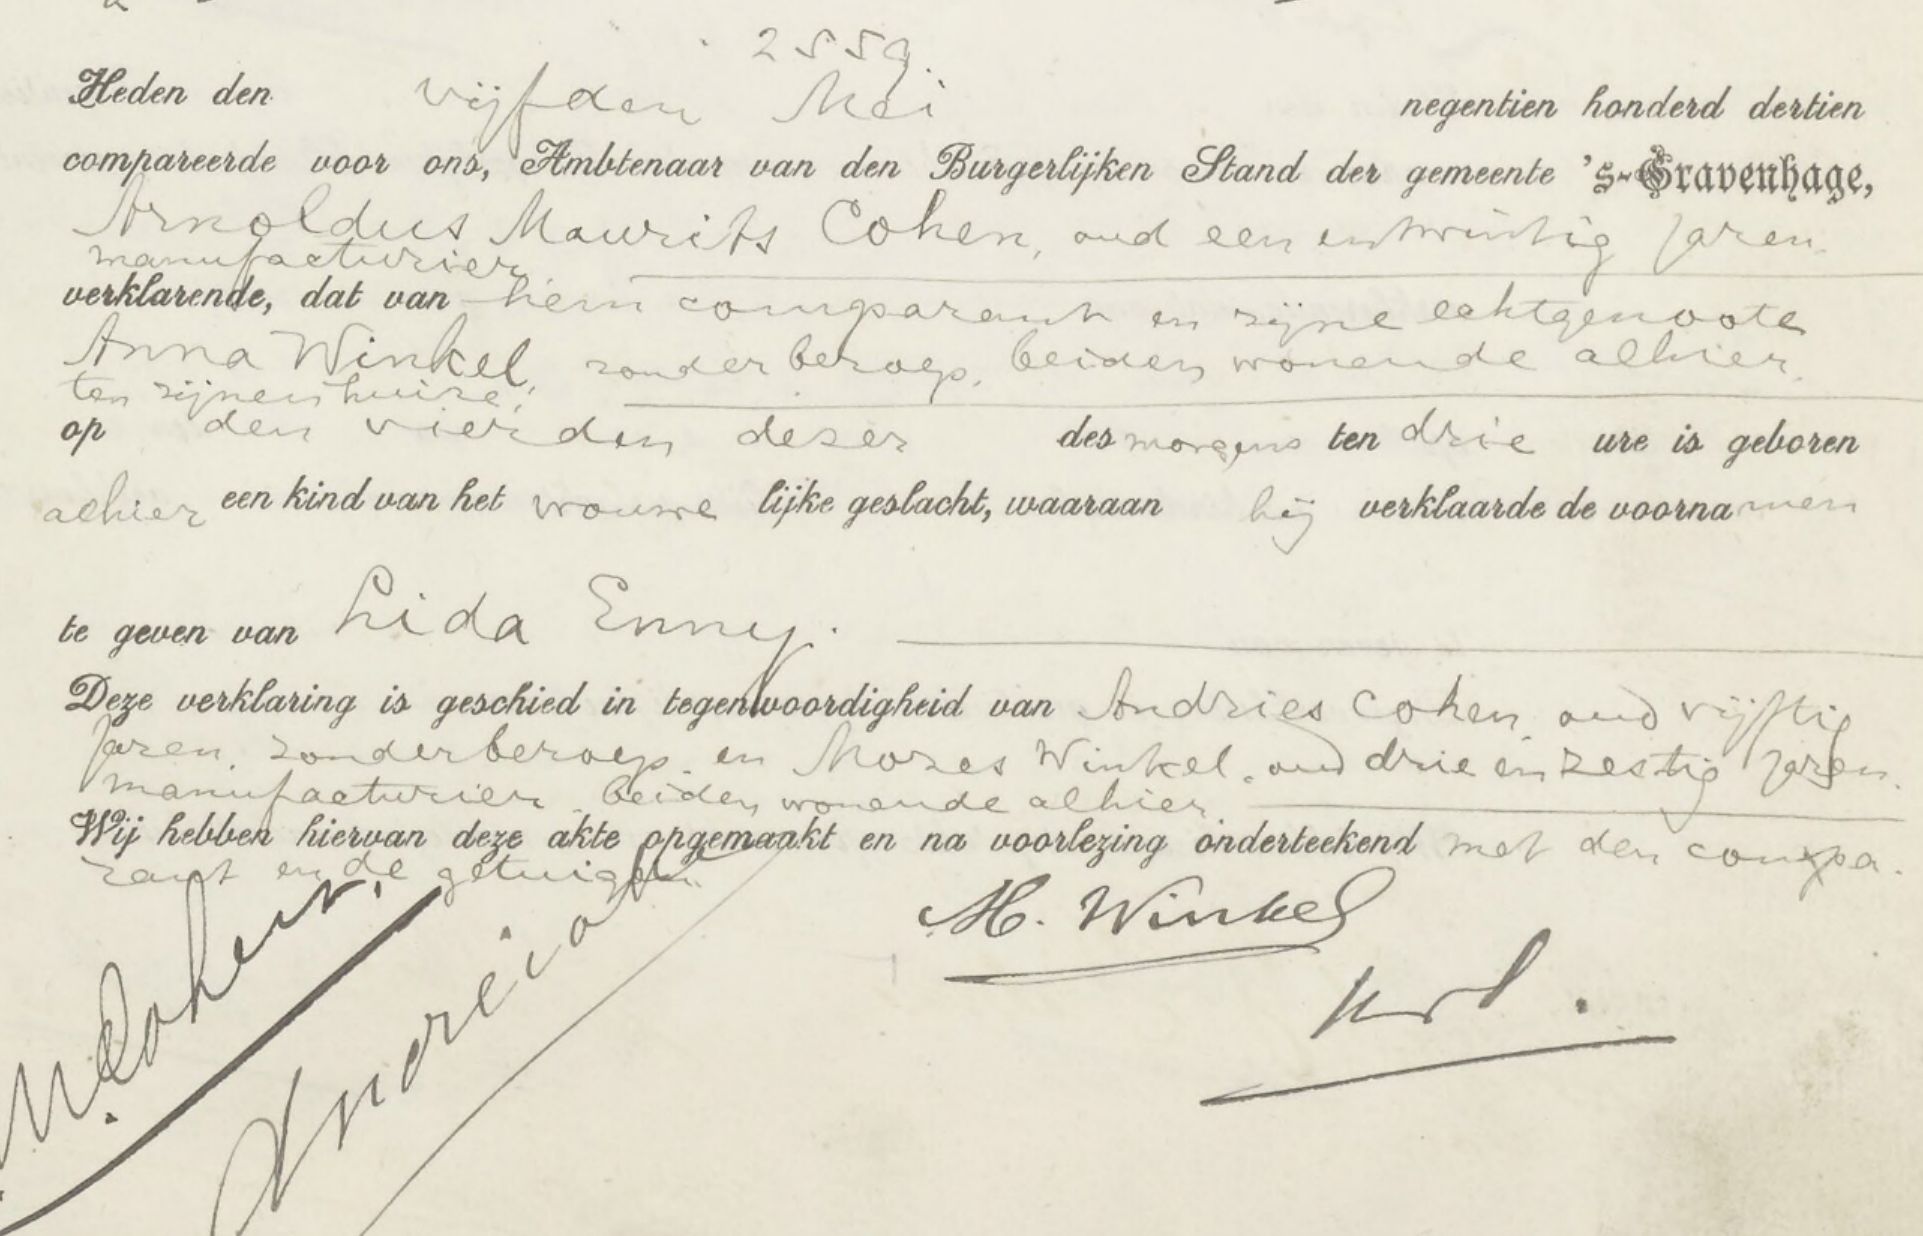 2559.
Heden den vijfden Mei negentien honderd dertien
compareerde voor ons, Ambtenaar van den Burgerlijken Stand der gemeente 's-Gravenhage,
Arnoldus Maurits Cohen, oud een entwintig jaren,
manufacturier,
verklarende, dat van hem comparant en zijne echtgenoote
Anna Winkel, zonder beroep, beiden wonende alhier,
ten zijnen huize,
op den vierden dezer des morgens ten drie ure is geboren
alhier een kind van het vrouwe lijke geslacht, waaraan hij verklaarde de voorna men
te geven van Lida Enny.
Deze verklaring is geschied in tegenwoordigheid van Andries Cohen, oud vijftig
jaren, zonder beroep, en Mozes Winkel, oud drie en zestig jaren,
manufacturier, beiden wonende alhier
Wij hebben hiervan deze akte opgemaakt en na voorlezing onderteekend met den compa-
rant en de getuigen.
M. Winkel
Cohen